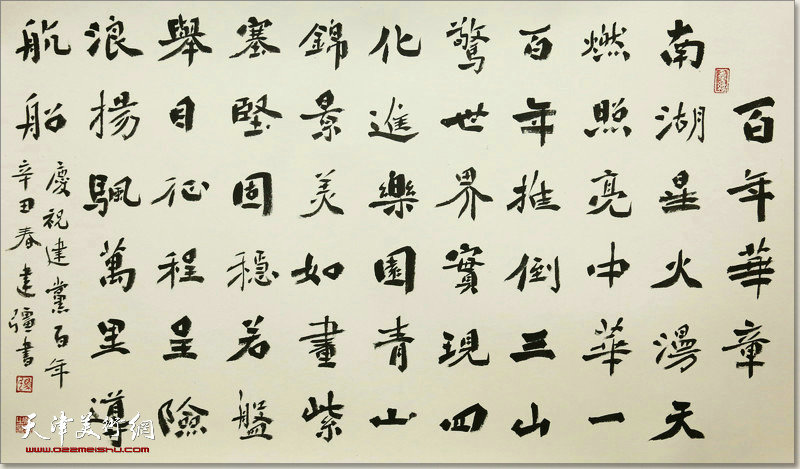 百年華章
南湖星火漫天
燃照亮中華一
百年推倒三山
驚世界實現四
化進樂園青山
錦景美如畫紫
塞堅固穩若盤
舉目征程呈險
浪揚颿萬里導
航船
慶祝建黨百年
辛丑春建疆書
天津美術網
www.022meishu.com